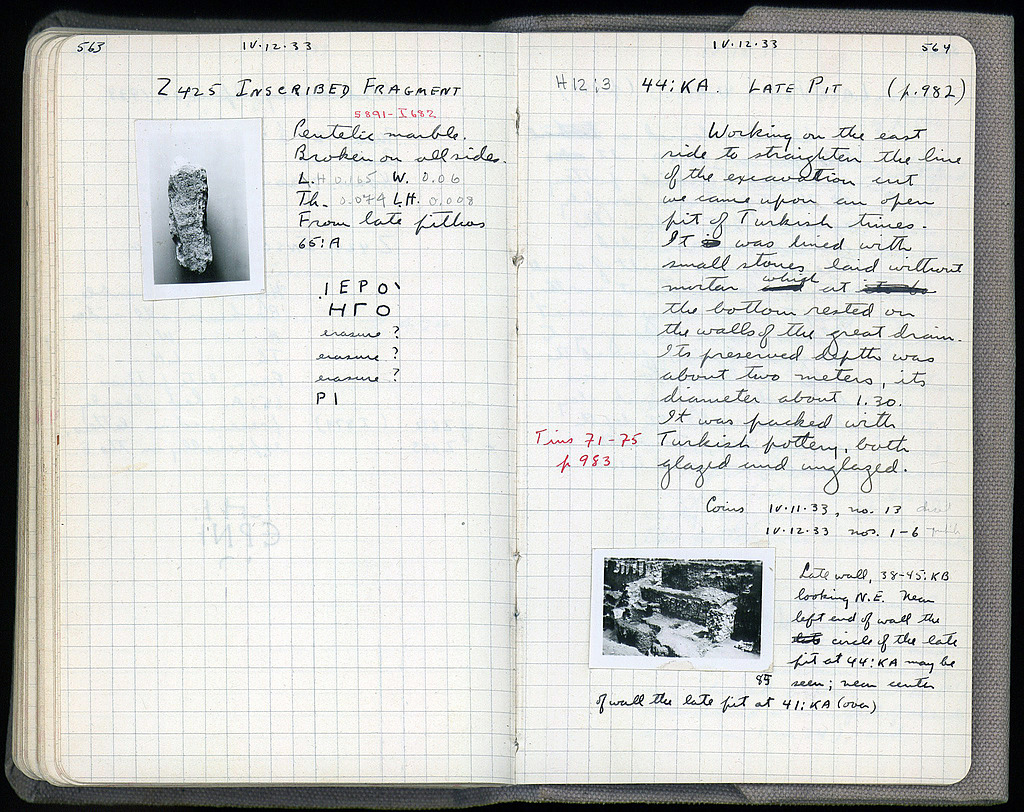 563
IV.12.33
Z 425 INSCRIBED FRAGMENT
5891-I 682
Pentelic marble.
Broken on all sides.
L. H 0.165 W. 0.06
Th. 0.074 L.H. 0.008
From late pithos
65:A
.ΙΕΡΟ
ΗΓΟ
erasure ?
erasure ?
erasure ?
ΡΙ
IV.12.33
564
H12:3 44:KA. LATE PIT (p.982)
Working on the east
side to straighten the line
of the excavation cut
we came upon an open
pit of Turkish times.
It is was lined with
small stones laid without
mortar which at
the bottom rested on
the walls of the great drain.
Its preserved depth was
about two meters, its
diameter about 1.30.
It was packed with
Tins 71-75 Turkish pottery, both
p 983 glazed and unglazed.
Coins IV.11.33, no. 13
IV.12.33 nos. 1-6
Late wall, 38-45:KB
looking N.E. Near
left end of wall the
circle of the late
pit at 44:KA may be
85 seen; near center
of wall the late pit at 41:KA (over)